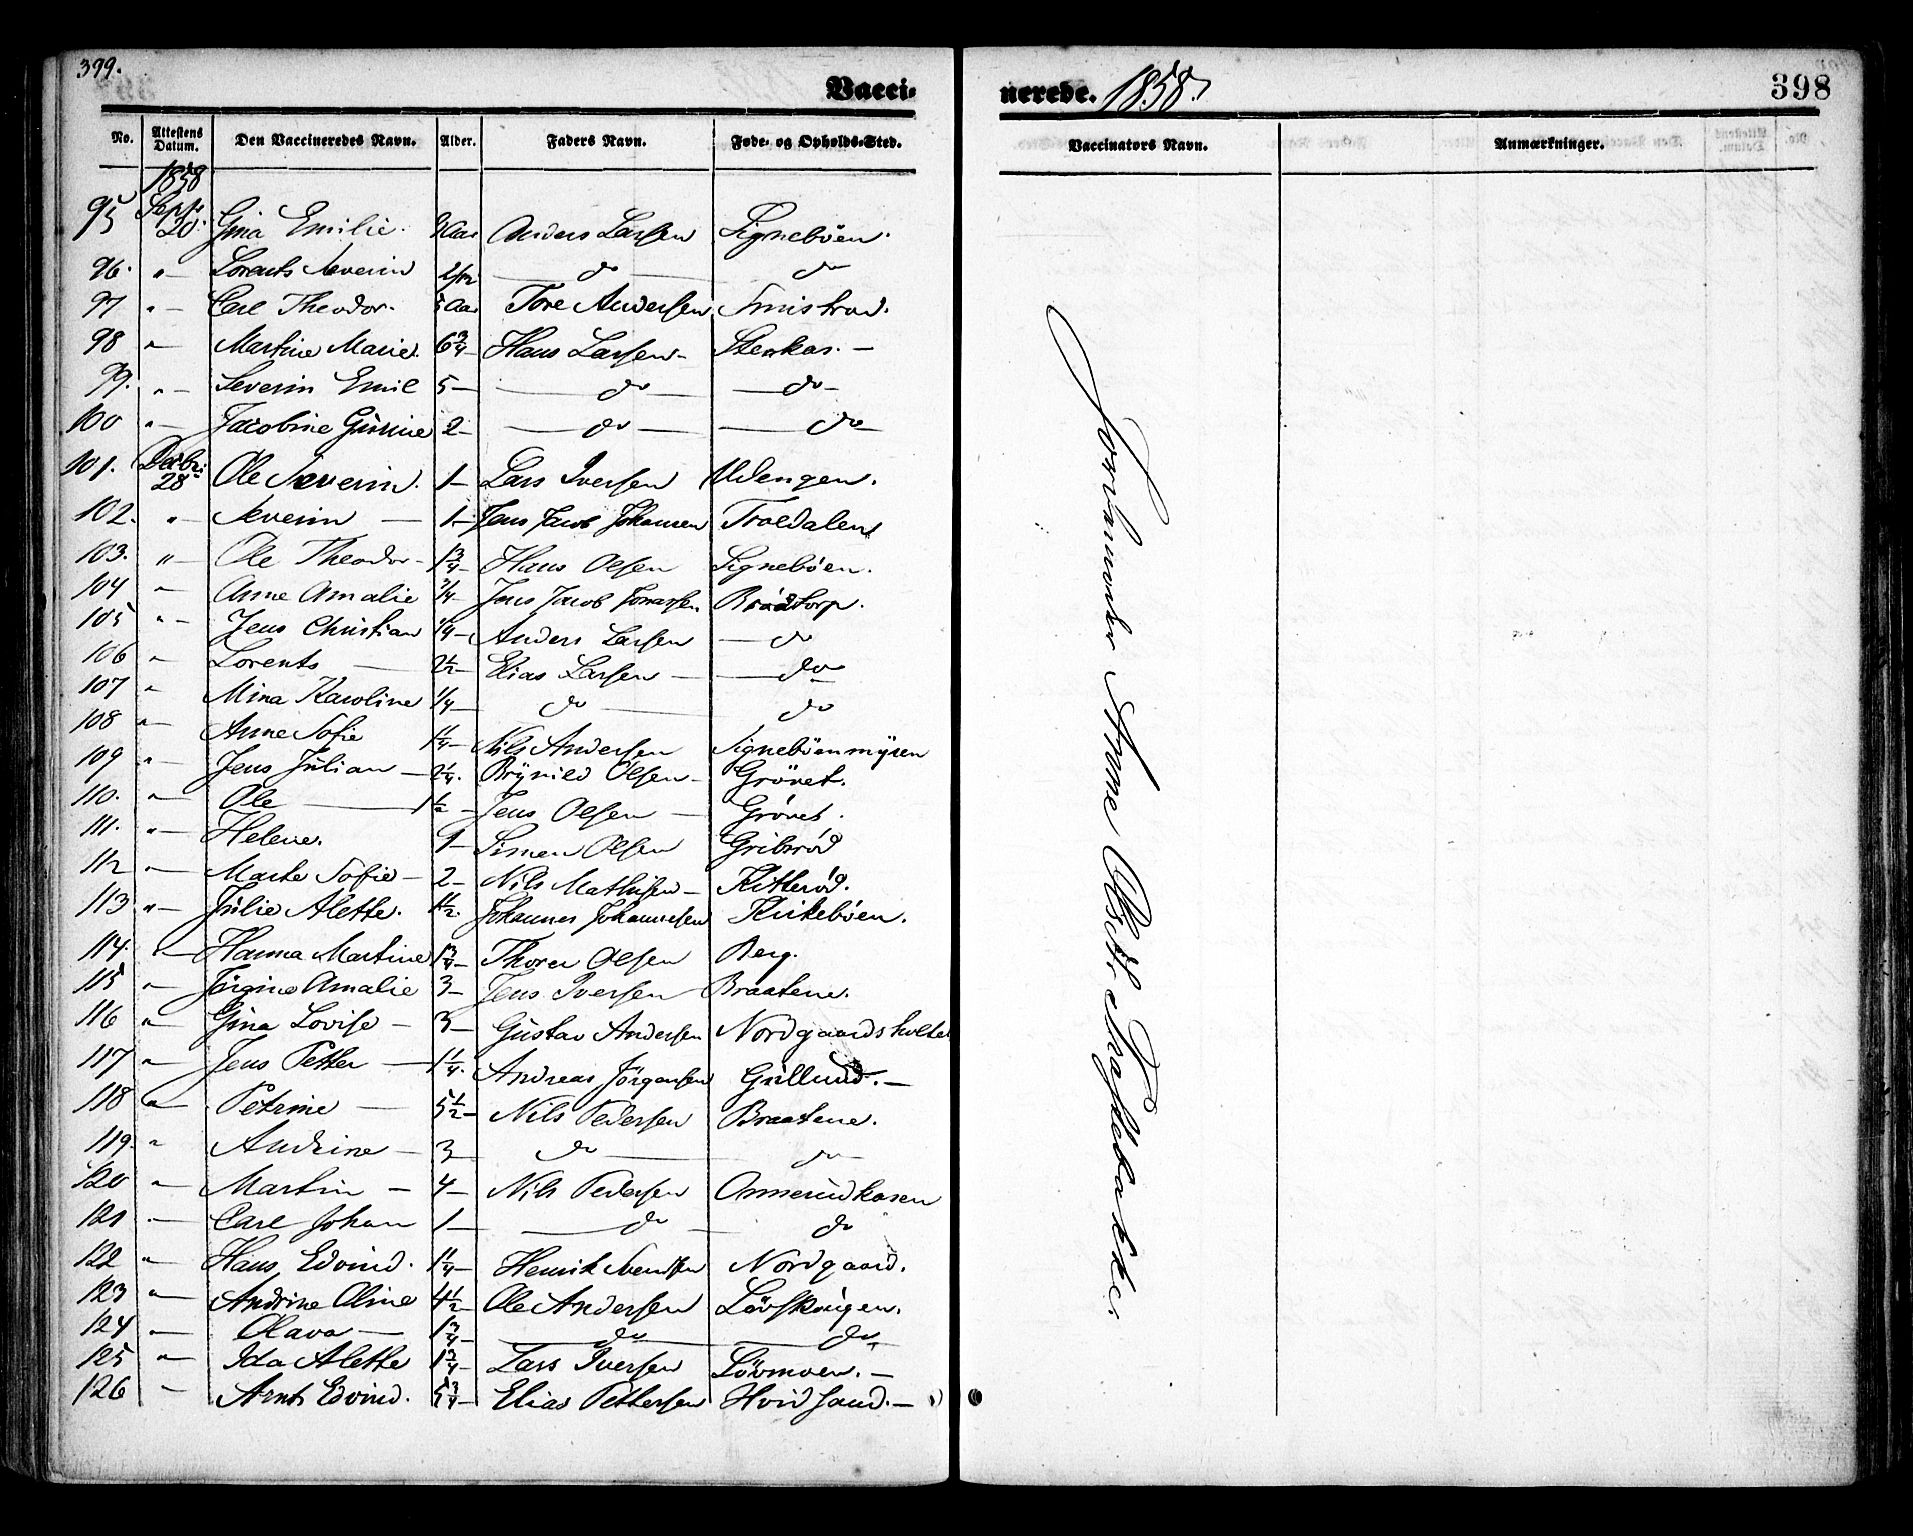 399.
Vacci-
nerede. 1858.
398
No. Attestens Datum. Den Vaccineredes Navn. Alder. Faders Navn. Føde- og Opholds-Sted.
Vaccinators Navn. Anmærkninger.
1858
95 Septr 20. Gina Emilie. Anders Larsen Signebøen.
96. " — Lorents Severin do do
97 " — Carl Theodor. 5 Aar Tore Andersen Smistrød.
98 " Martine Marie. 6 3/4 Hans Larsen — Stenkas. —
99. " — Severin Emil 5 — do — do —
100 " — Jacobine Gurine 2 — do — do —
101. Decbr. 28 Ole Severin. 1 — Lars Iversen Udengen.
102. " — Severin — 1 — Jens Jacob Johansen Troldalen
103. " — Ole Theodor — 1 3/4 — Hans Olsen Signebøen.
104 " — Anne Amalie 3/4 — Jens Jacob Jonassen Braatorp.
105 " — Jens Christian 1/4 — Anders Larsen — do
106 " Lorents — 2 1/2 — Elias Larsen — do
107 " Mina Karoline 1/4 — do — do
108 " — Anne Sofie 1 1/4 — Nils Andersen Signebøenmyren
109 " — Jens Julian — 2 1/4. Brynild Olsen — Grønet.
110. " — Ole — 1 1/2 — Jens Olsen — Grønet.
111. " — Helene. 1 — Simen Olsen Gribsrød
112 " — Marte Sofie — 2 — Nils Mathisen — Kitterød.
113 " — Julie Alette. 1 1/2. Johannes Johannesen Kirkebøen.
114. " — Hanna Martine 1 3/4 — Thorer Olsen Berg.
115 " — Jörgine Amalie 3 — Jens Iversen — Braatene.
116 " — Gina Lovise — 3 — Gustav Andersen Nordgaardsholtet
117 " — Jens Petter — 1 1/4. Andreas Jörgensen Gullund. —
118 " — Petrine — 5 1/2 — Nils Pedersen Braatene.
119. " Andrine — 3 — do — do —
120 " — Martin — 4 — Nils Pedersen Omerudkasen
121 " — Carl Johan 1 — do — do
122 " — Hans Edvind. 1 1/4 — Henrik Svendsen Nordgaard.
123 " — Andrine Oline 4 1/2 — Ole Andersen Lövskougen.
124 " — Olava — 1 3/4 — do — do
125 " — Ida Alette 1 3/4 — Lars Iversen Lövmoen. —
126 — Arnt Edvind. 5 3/4 — Elias Pettersen Hvidsand. —
Jordemoder Anne